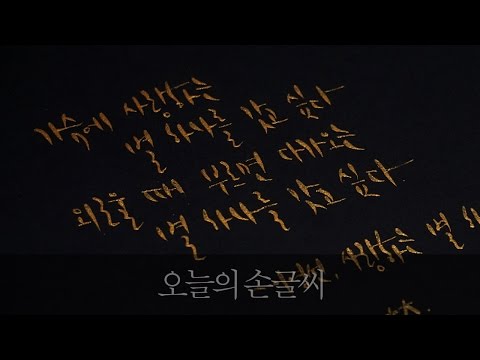 가슴에 사랑하는
별 하나를 갖고 싶다
외로울 때 부르면 다가오는
별 하나를 갖고 싶다.
사랑하는 별
오늘의 손글씨